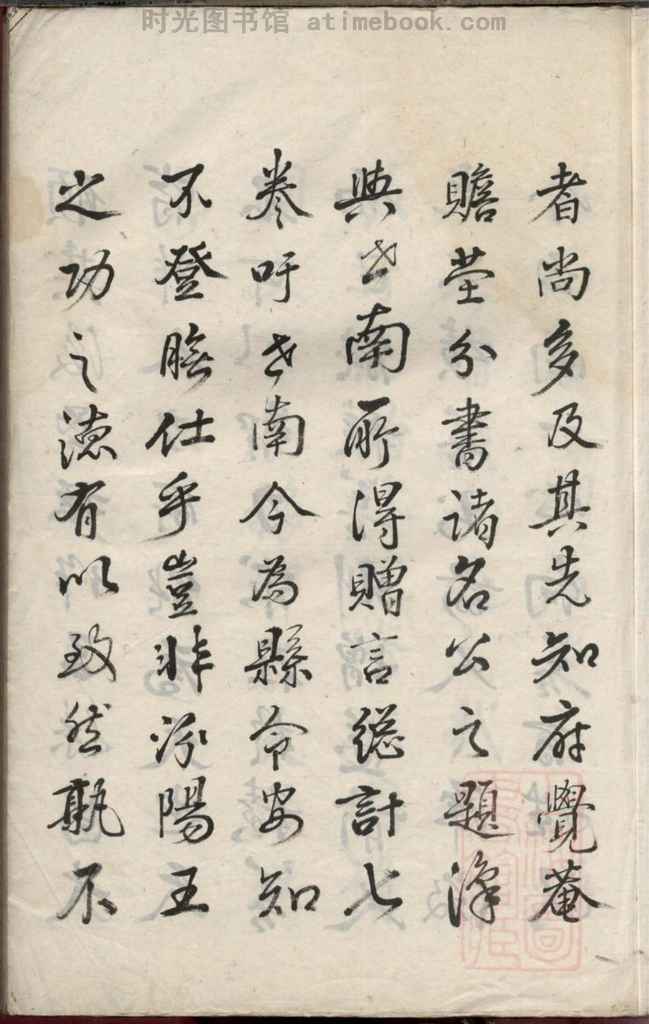 时光图书馆 atimebook.com
者尚多及其先知府覺菴
贍塋分書諸名公之題
與世南所得贈言總計七
卷吁世南今為縣令安知
不登膴仕乎豈非汾陽王
之功之德有以致然孰不